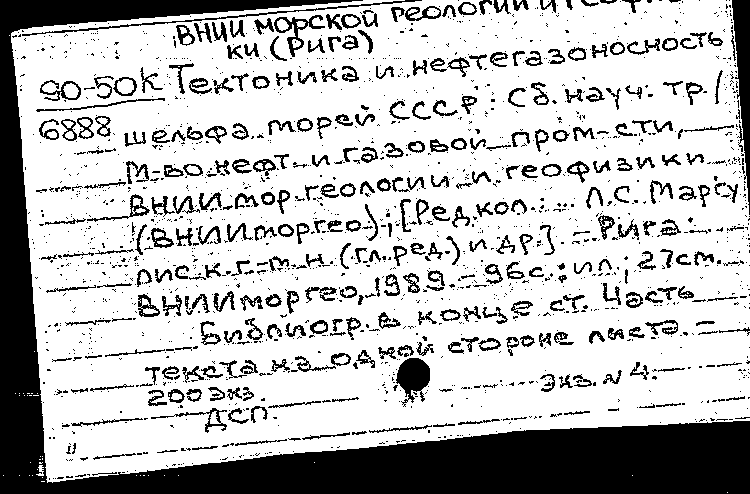 ВНИИ морской геологии и геофизи-
ки (Рига)
90-50к Тектоника и нефтегазоносность
6888 шельфа морей СССР : Сб. науч. тр. /
М-во нефт. и газовой пром-сти,
ВНИИ мор. геологии и геофизики
(ВНИИморгео) ; [Редкол.: ... Л.С. Маргу
лис к. г.-м. н. (гл. ред.) и др.]. - Рига :
ВНИИморгео, 1989. - 96 с. : ил. ; 27 см.
Библиогр. в конце ст. Часть
текста на одной стороне листа. -
200 экз. Экз. N 4.
ДСП.